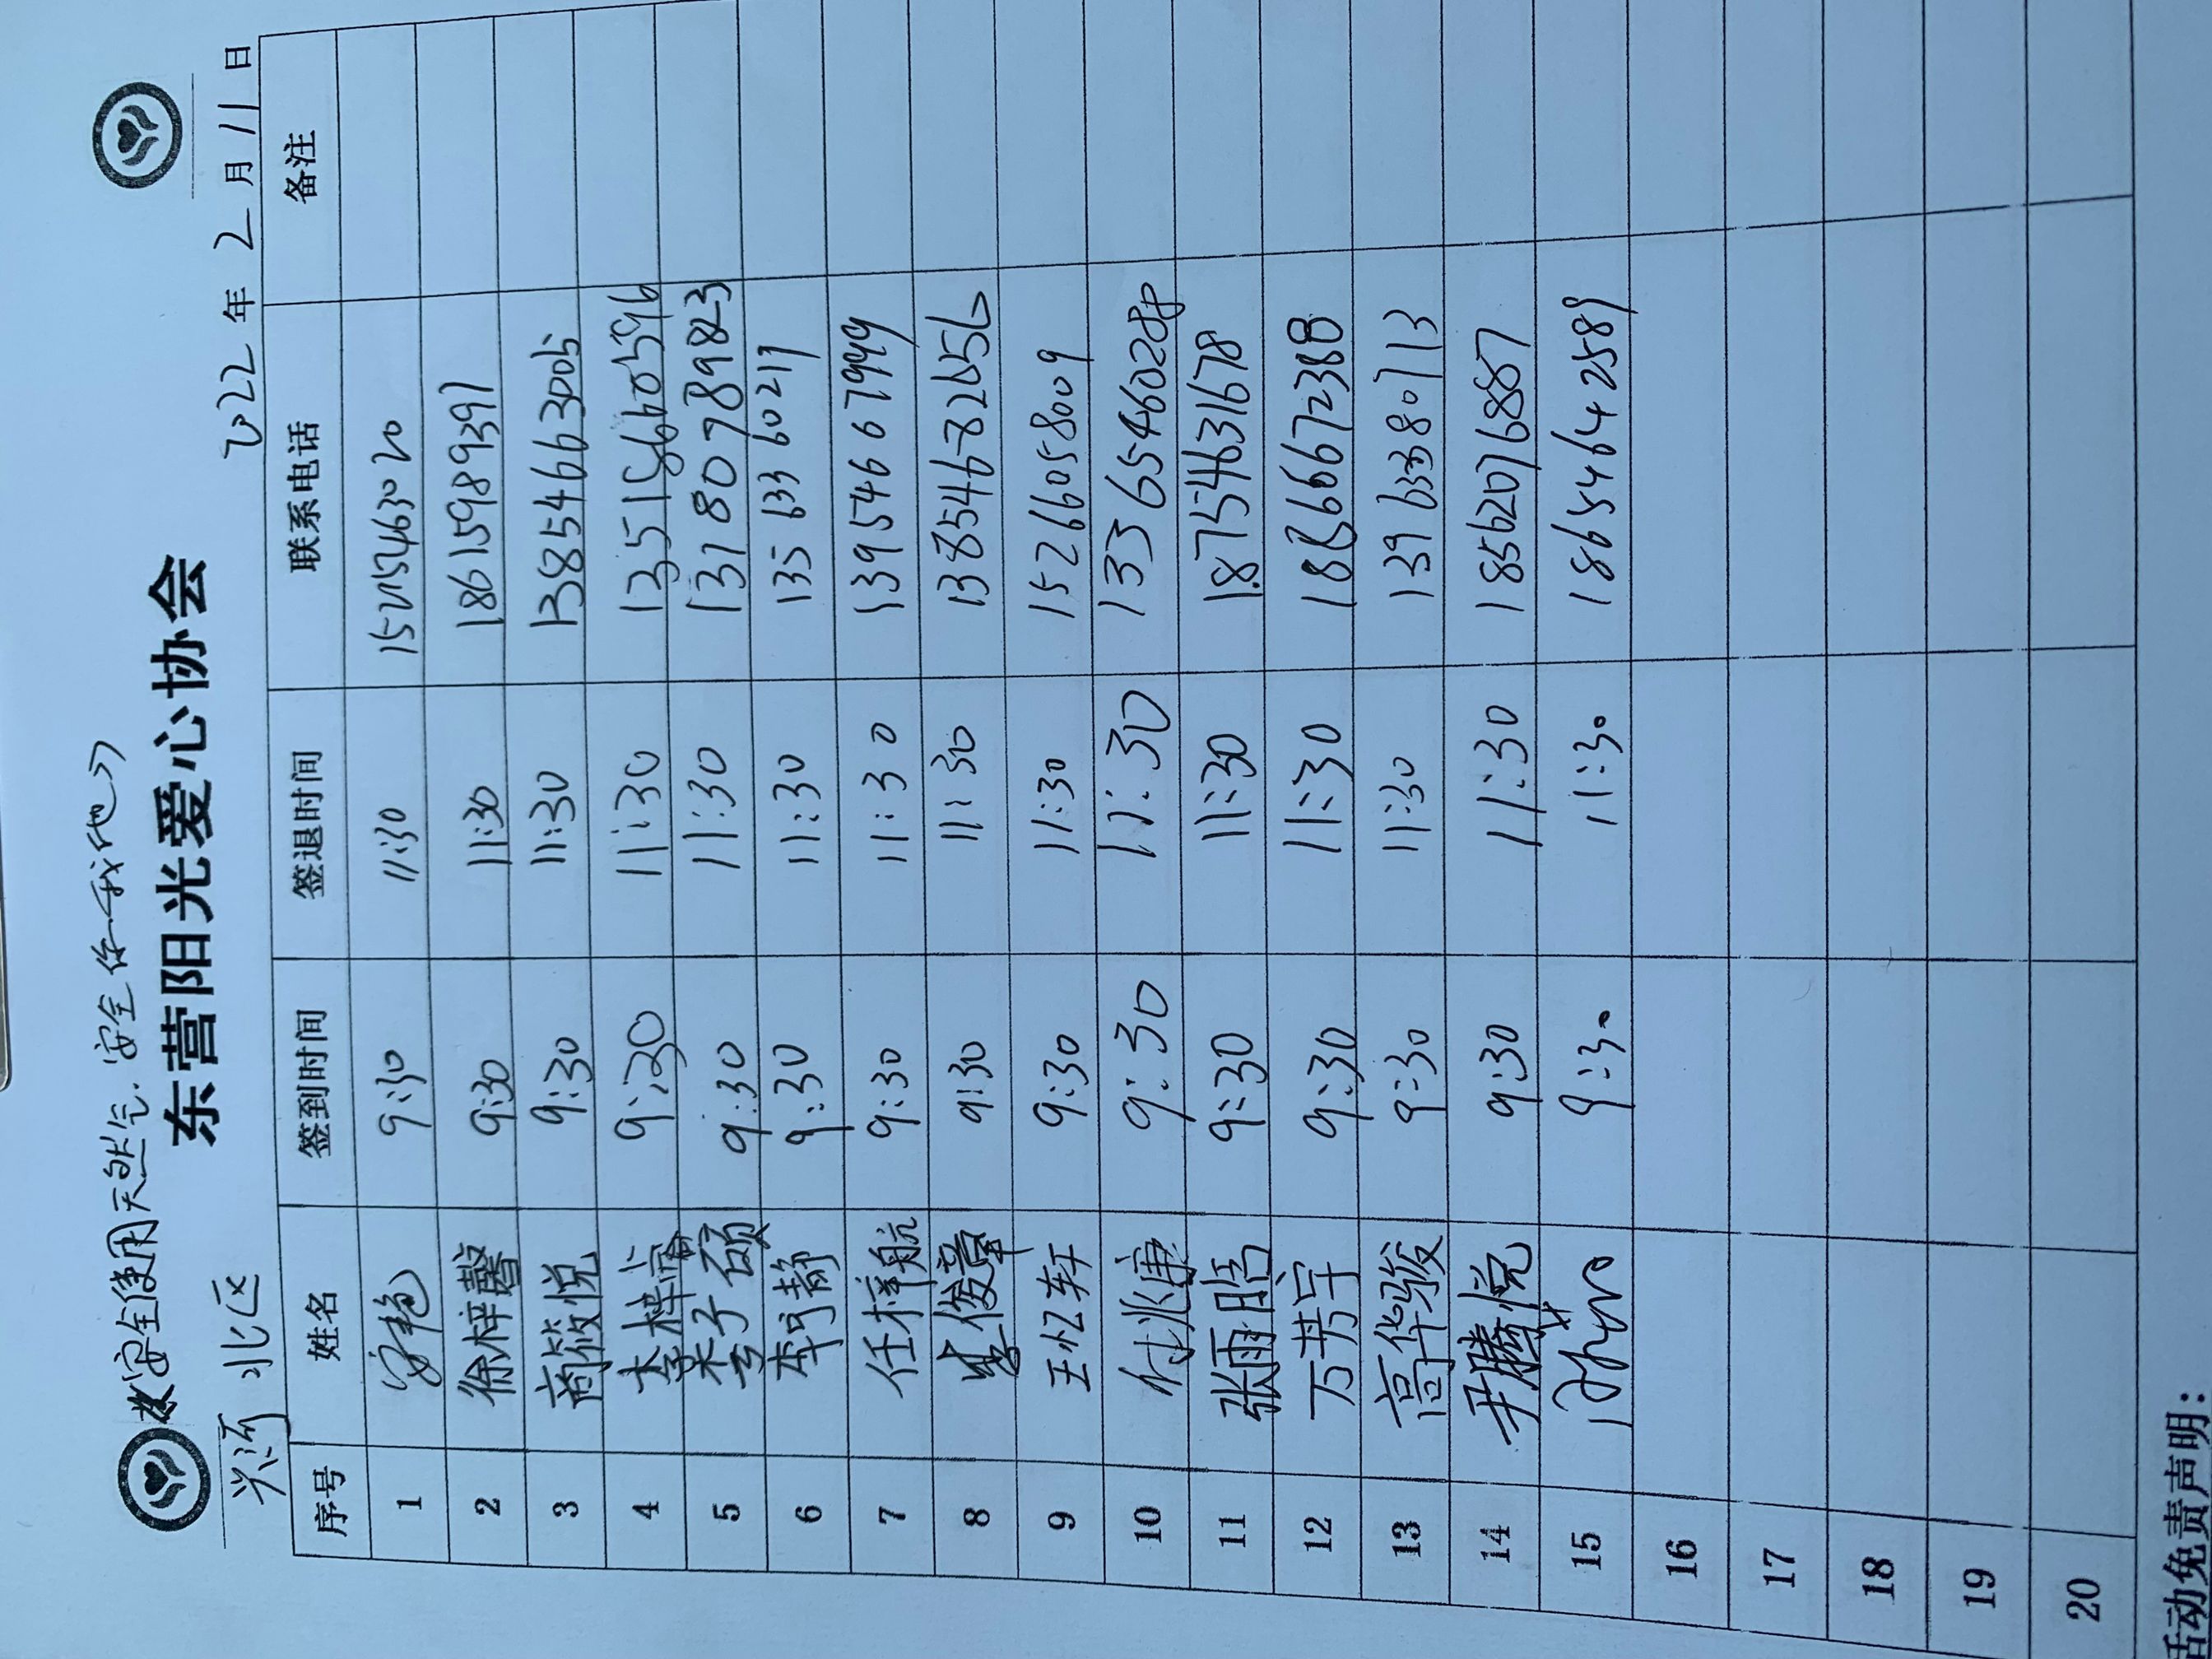 安全使用天然气.安全你我他>>
东营阳光爱心协会
兴河北区 2022年2月11日
序号 姓名 签到时间 签退时间 联系电话 备注
1 9:30 11:30 15215463020
2 徐梓馨 9:30 11:30 18615989391
3 商筱悦 9:30 11:30 13854663005
4 李梓 9:30 11:30 13515660596
5 子硕 9:30 11:30 13180789823
6 李静 9:30 11:30 13563360211
7 任梓航 9:30 11:30 13954667999
8 俊章 9:30 11:30 13854678265
9 王忆轩 9:30 11:30 15266058009
10 付兆康 9:30 11:30 13365460288
11 张雨晗 9:30 11:30 18754631678
12 万芳宇 9:30 11:30 18866672388
13 高华骏 9:30 11:30 13963380713
14 尹腾悦 9:30 11:30 18562076887
15 9:30 11:30 18654642589
16
17
18
19
20
活动免责声明：